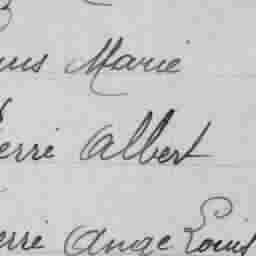 Marie
erre Albert
erre Ange Louis